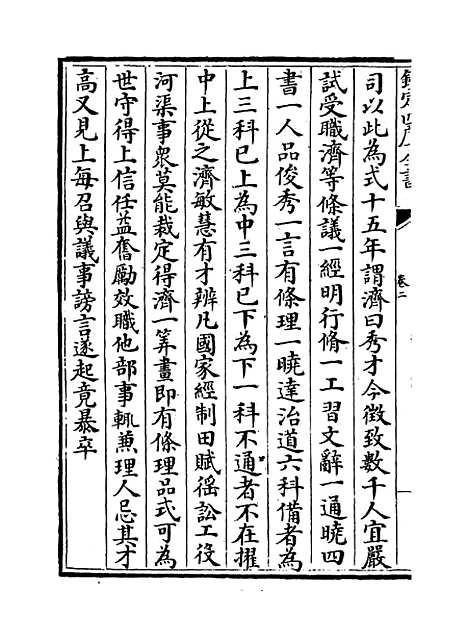 欽定四庫全書
卷二
司以此為式十五年謂濟曰秀才今徵致數千人宜嚴
試受職濟等條議一經明行脩一工習文辭一通曉四
書一人品俊秀一言有條理一曉達治道六科備者為
上三科已上為中三科已下為下一科不通者不在擢
中上從之濟敏慧有才辨凡國家經制田賦徭訟工役
河渠事衆莫能裁定得濟一筭畫即有條理品式可為
世守得上信任益奮勵效職他部事輒兼理人忌其才
高又見上每召與議事謗言遂起竟暴卒